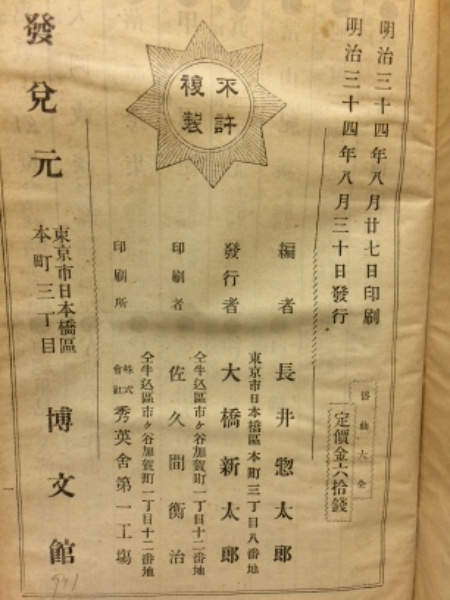 明治三十四年八月廿七日印刷
明治三十四年八月三十日發行
俗曲大全
定價金六拾錢
不許
複製
編者
長井惣太郎
東京市日本橋區本町三丁目八番地
發行者
大橋新太郎
仝牛込區市ヶ谷加賀町一丁目十二番地
印刷者
佐久間衡治
仝牛込區市ヶ谷加賀町一丁目十二番地
印刷所
株式
會社
秀英舍第一工塲
發兌元
東京市日本橋區
本町三丁目
博文館